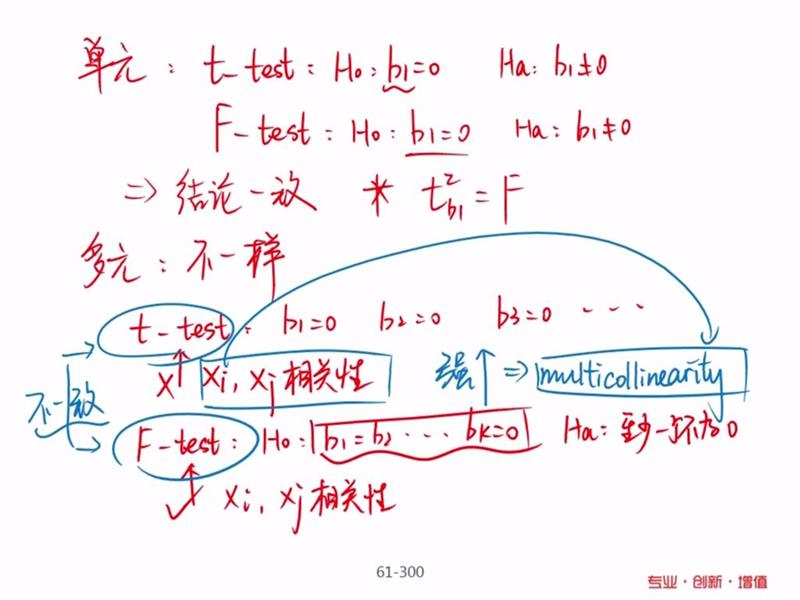 单元：t-test：H₀：b₁=0 Ha：b₁≠0
F-test：H₀：b₁=0 Ha：b₁≠0
⇒ 结论一致 * t²b₁=F
多元：不一样
t-test： b₁=0 b₂=0 b₃=0 ···
X Xi，Xj 相关性 强↑ ⇒ multicollinearity
不一致
F-test：H₀：b₁=b₂ ··· bk=0 Ha：至少一个不为0
✓ Xi，Xj 相关性
61-300
专业·创新·增值